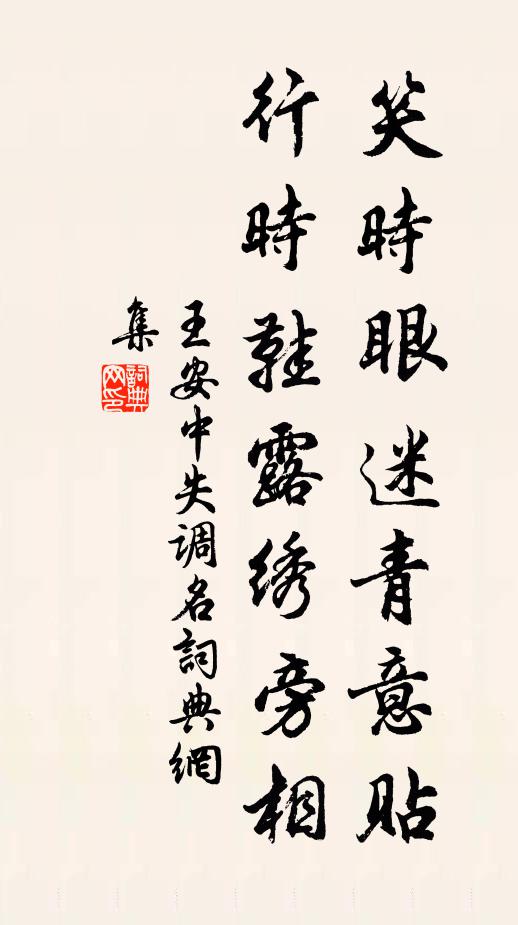 笑時眼迷青意貼
行時鞋露綉旁相
王安中失调名詞典網
集
詞典网印